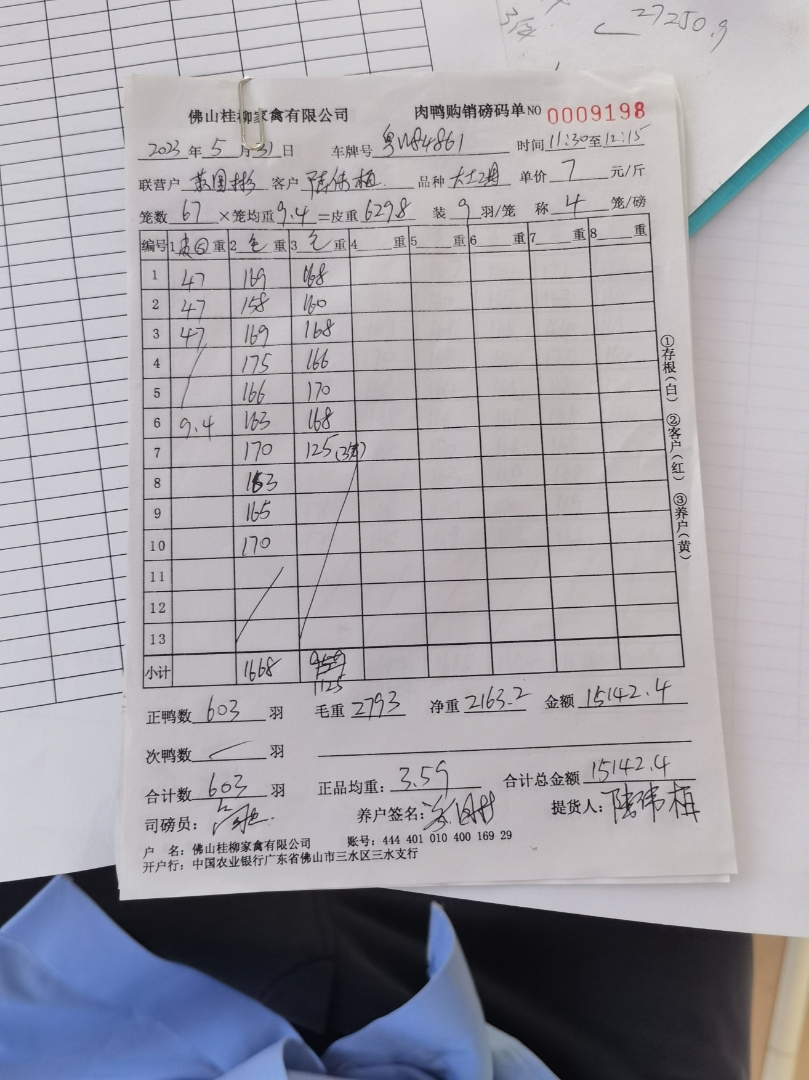 27250.9
佛山桂柳家禽有限公司 肉鸭购销磅码单 NO 0009198
2023 年 5 月 31 日 车牌号 时间 11:30至12:15
联营户 客户 陆伟梅 品种 单价 7 元/斤
笼数 67 ×笼均重 9.4 =皮重 629.8 装 9 羽/笼 称 4 笼/磅
编号 1 重 2 毛 重 3 毛 重 4 重 5 重 6 重 7 重 8 重
1 47 169 168
2 47 158 160
3 47 169 168
4 175 166
5 166 170
6 9.4 163 168
7 170 125
8 163
9 165
10 170
11
12
13
小计 1668 1125
正鸭数 603 羽 毛重 2793 净重 2163.2 金额 15142.4
次鸭数 羽
合计数 603 羽 正品均重: 3.59 合计总金额 15142.4
司磅员: 养户签名: 提货人: 陆伟梅
户 名: 佛山桂柳家禽有限公司 账号: 444 401 010 400 169 29
开户行: 中国农业银行广东省佛山市三水区三水支行
①存根(白) ②客户(红) ③养户(黄)